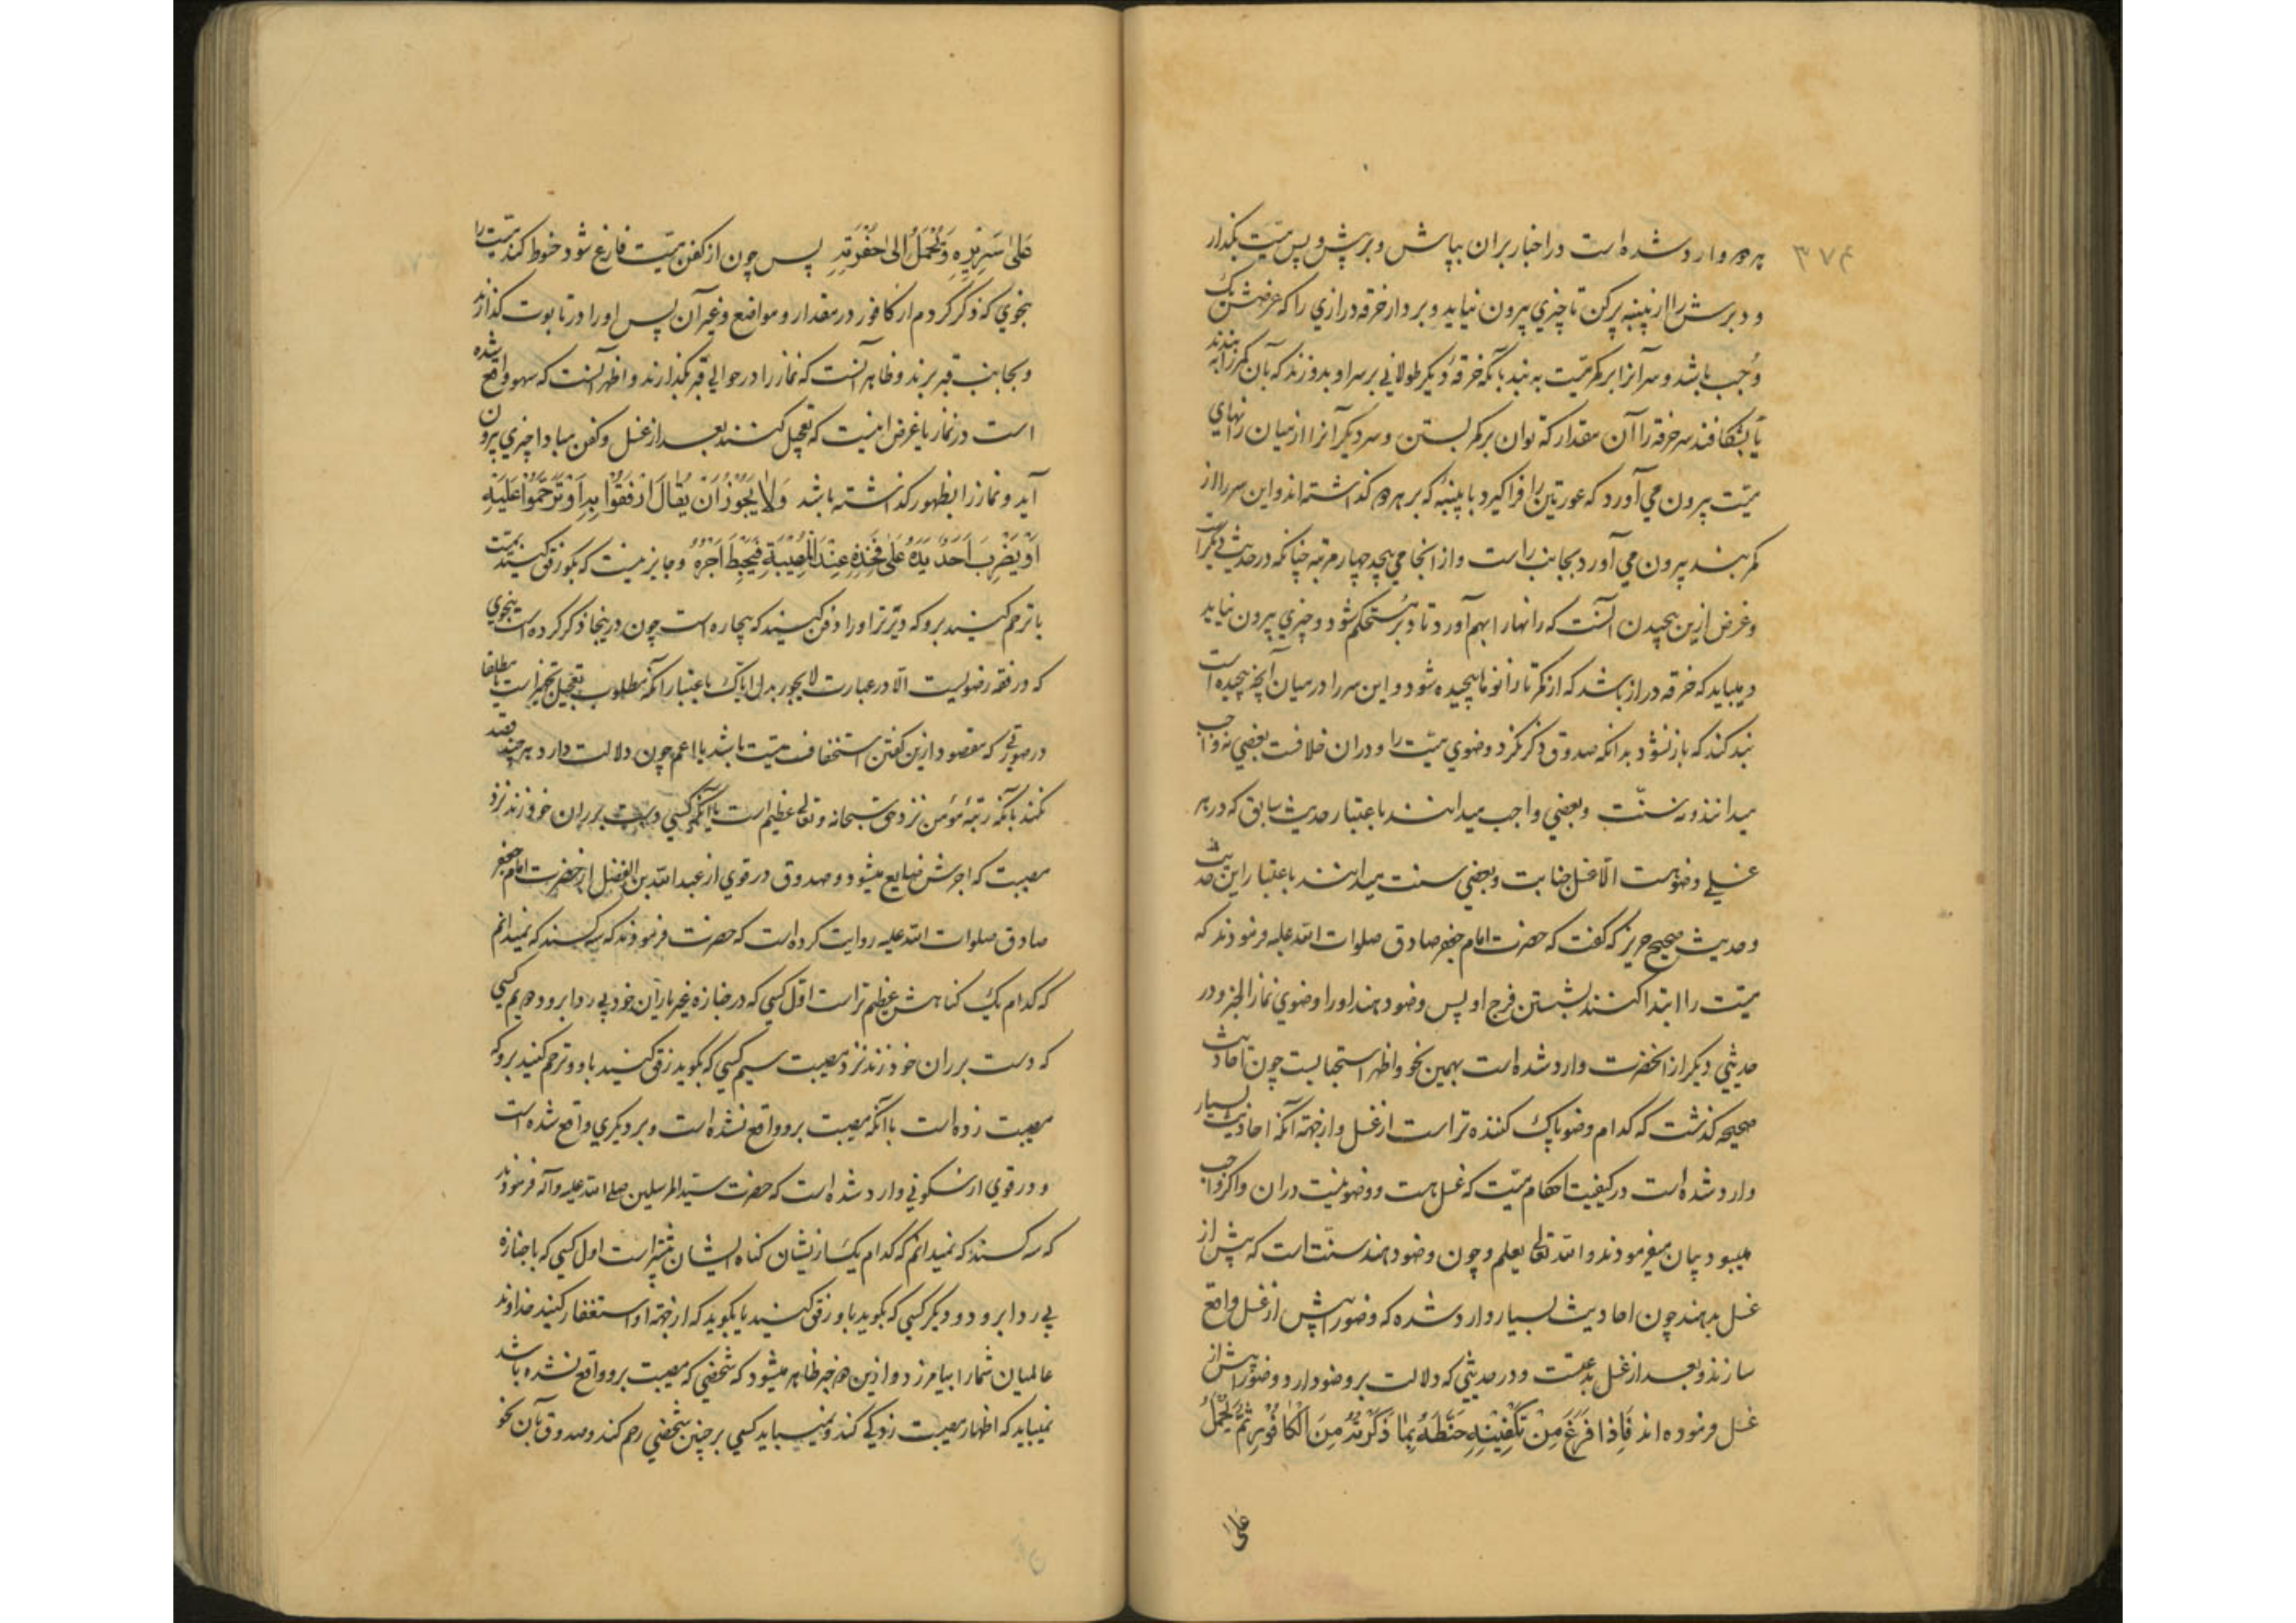 ۳۷۴
هر دو وارد شده است در اخبار بران بپاش و بر پیش و پس میت بگذار
و دبرش را از پنبه پر کن تا چیزی بیرون نیاید و بردار خرقه درازی را که عرضش یک
وجب باشد و سر آنرا بر کمر میت به بند یا آنکه خرقه دیگر طولانی بر سر او بدوزند که بآن کمر را به بندند
یا بشکافند سر خرقه را آن مقدار که توان بر کمر بستن و سر دیگر آنرا از میان رانهای
میت بیرون می آورد که عورتین را فرا گیرد با پنبه که بر هر دو گذاشته اند و این سر را از
کمر بند بیرون می آورد بجانب راست و از انجا می پیچد چهار مرتبه چنانکه در حدیث دیگر است
و غرض ازین پیچیدن آنست که رانها را بهم آورد تا دبر مستحکم شود و چیزی بیرون نیاید
و میباید که خرقه دراز باشد که از کمر تا زانوها پیچیده شود و این سر را در میان آنچه پیچیده است
بند کند که باز نشود بدانکه صدوق ذکر نکرد وضوی میت را و دران خلافست بعضی نه واجب
میدانند و نه سنت و بعضی واجب میدانند باعتبار حدیث سابق که در هر
غسلی وضو هست الا غسل جنابت و بعضی سنت میدانند باعتبار این حدیث
و حدیث صحیح حریز که گفت که حضرت امام جعفر صادق صلوات الله علیه فرمودند که
میت را ابتدا کنند بشستن فرج او پس وضو دهند او را وضوی نماز الخبر و در
حدیثی دیگر از انحضرت وارد شده است بهمین نحو و اظهر استحبابست چون احادیث
صحیحه گذشت که کدام وضو پاک کننده تر است از غسل و ازجهة آنکه احادیث بسیار
وارد شده است در کیفیت احکام میت که غسل هست و وضو نیست دران و اگر واجب
میبود بیان میفرمودند و الله تعالی یعلم و چون وضو دهند سنت است که پیش از
غسل بدهند چون احادیث بسیار وارد شده که وضو را پیش از غسل واقع
سازند و بعد از غسل بدعتست و در حدیثی که دلالت بر وضو دارد وضو را پیش از
غسل فرموده اند فَاِذا فَرَغَ مِنْ تَكْفینِهِ حَنَّطَهُ بِمٰا ذَكَرْتُهُ مِنَ الْكٰافُورِ ثُمَّ یُحْمَلُ
علی
عَلیٰ سَریرِهِ وَ یُحْمَلُ اِلیٰ حُفْرَتِهِ پس چون از کفن میت فارغ شود حنوط کند میت را
بنحوی که ذکر کردم از کافور در مقدار و مواضع و غیر آن پس او را در تابوت گذارند
و بجانب قبر برند و ظاهر آنست که نماز را در حوالی قبر بگذارند و اظهر آنست که سهو واقع شده
است در نماز یا غرض اینست که تعجیل کنند بعد از غسل و کفن مبادا چیزی بیرون
آید و نماز را بظهور گذاشته باشد وَلاٰ یَجُوزُ اَنْ یُقالَ ارْفَقُوْا بِهِ اَوْ تَرَحَّمُوْا عَلَیْهِ
اَوْ یَضْرِبَ اَحَدٌ یَدَهُ عَلیٰ فَخِذِهِ عِنْدَ الْمُصیبَةِ فَیَحْبَطَ اَجْرُهُ و جایز نیست که بگوید رفق کنید بمیت
یا ترحم کنید برو که دیرتر او را دفن کنید که بیچاره است چون درینجا ذکر کرده است بنحوی
که در فقه رضویست الا در عبارت لا یجوز بدل ایاک باعتبار آنکه مطلوب تعجیل تجهیز است مطلقا یا
در صورتی که مقصود ازین گفتن استخفاف میت باشد یا اعم چون دلالت دارد هر چند قصد
نکند بآنکه رتبهٔ مؤمن نزد حق سبحانه و تعالی عظیم است یا آنکه کسی دست بر ران خود زند نزد
مصیبت که اجرش ضایع میشود و صدوق در قوی از عبد الله بن الفضل از حضرت امام جعفر
صادق صلوات الله علیه روایت کرده است که حضرت فرمودند که سه کسند که نمیدانم
که کدام یک گناهش عظیم تر است اول کسی که در جنازه غیر یاران خود بی ردا برود دویم کسی
که دست بر ران خود زند نزد مصیبت سیم کسی که بگوید رفق کنید باو و ترحم کنید برو که
مصیبت زده است با آنکه مصیبت برو واقع نشده است و بر دیگری واقع شده است
و در قوی از سکونی وارد شده است که حضرت سید المرسلین صلی الله علیه و آله فرمودند
که سه کسند که نمیدانم که کدام یک ازیشان گناه ایشان بیشتر است اول کسی که با جنازه
بی ردا برود و دیگر کسی که بگوید باو رفق کنید یا بگوید که ازجهة او استغفار کنید خداوند
عالمیان شما را بیامرزد و ازین دو خبر ظاهر میشود که شخصی که مصیبت برو واقع نشده باشد
نمیباید که اظهار مصیبت زدگی کند و نمیباید کسی بر چنین شخصی رحم کند و صدوق بآن نحو